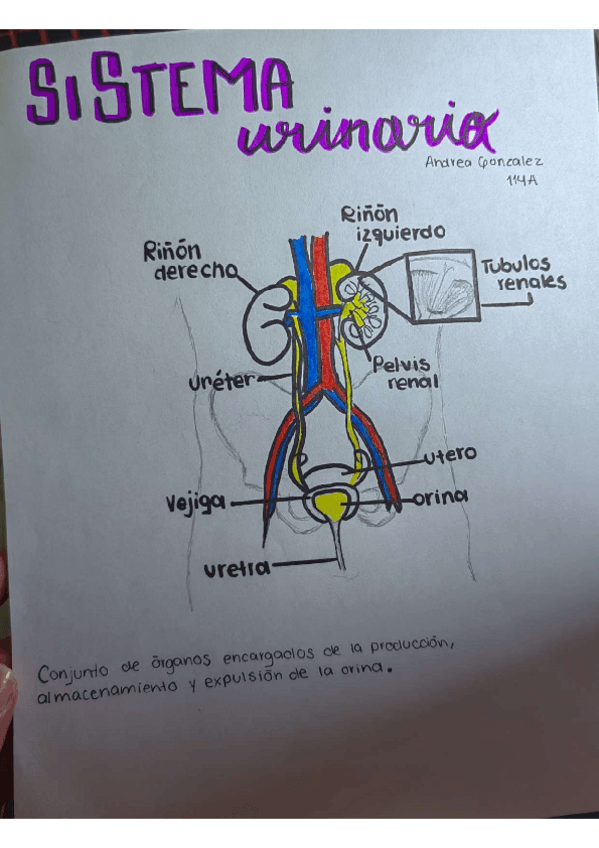 SISTEMA
urinario
Andrea Gonzalez
114A
Riñón
izquierdo
Riñón
derecho
Tubulos
renales
Pelvis
renal
uréter
utero
Vejiga
orina
uretra
Conjunto de órganos encargados de la producción,
almacenamiento y expulsión de la orina.